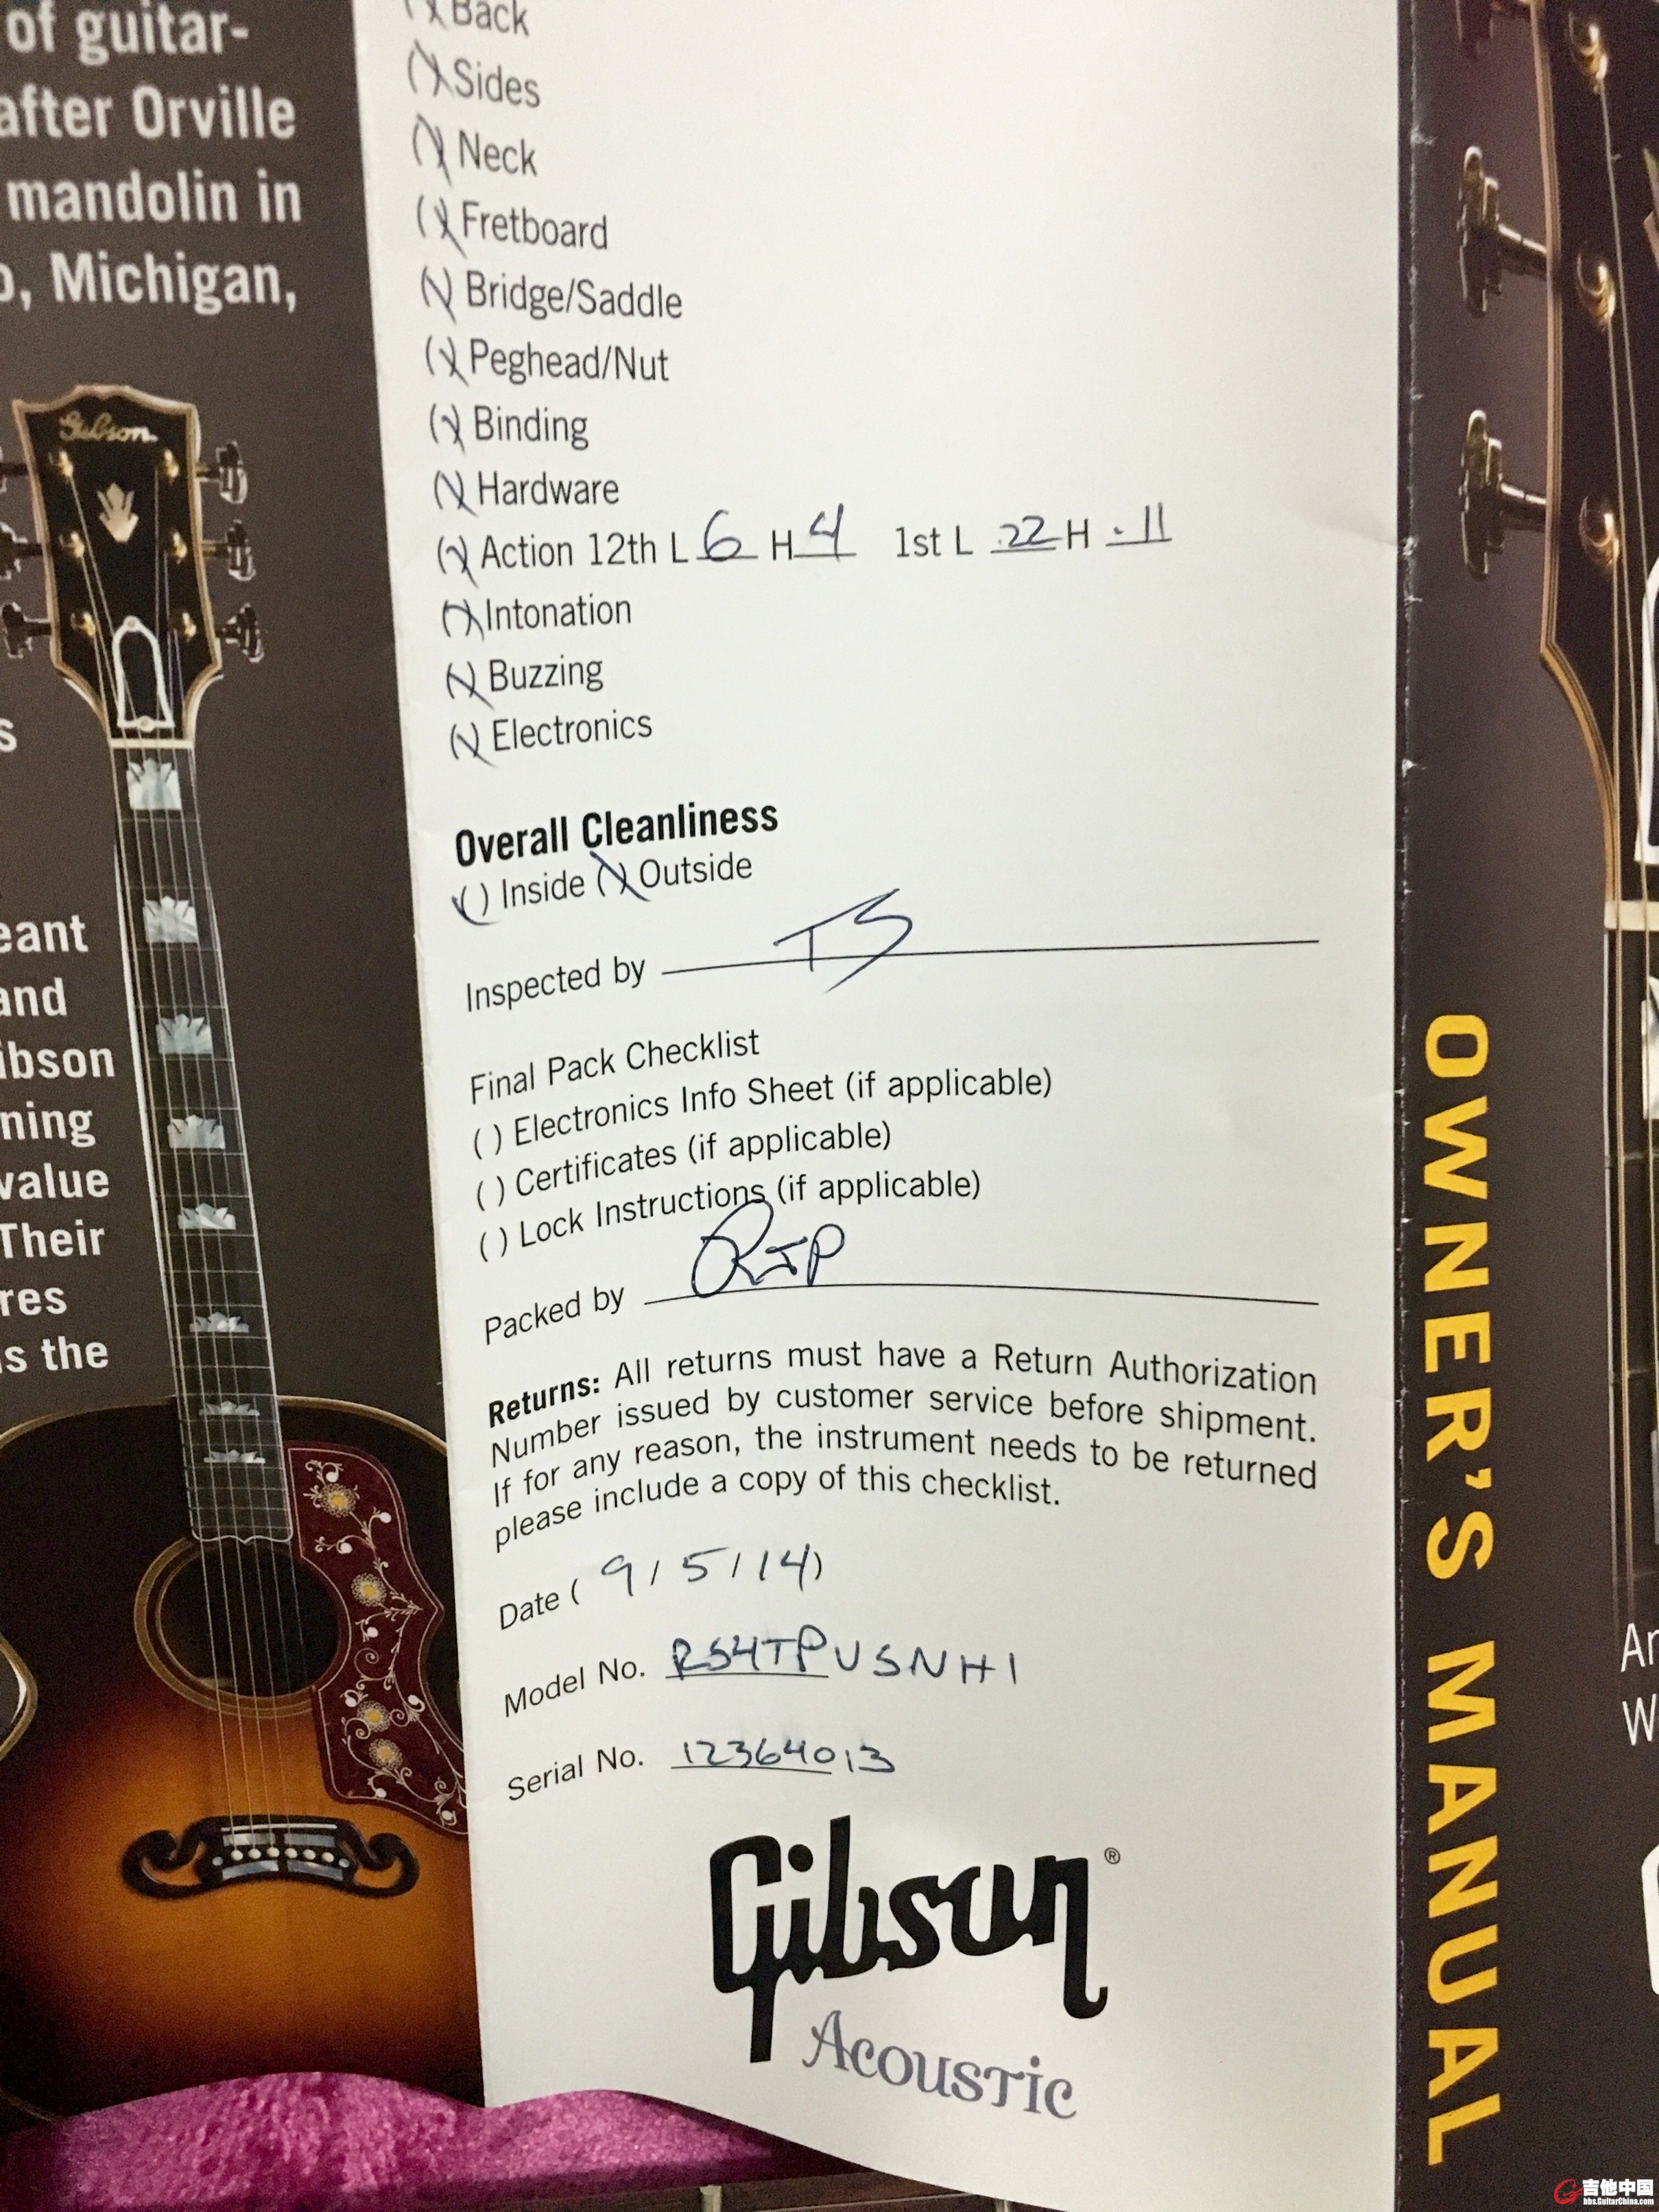 of guitar-
after Orville
mandolin in
, Michigan,
Gibson
s
eant
and
ibson
ning
value
Their
res
s the
(X Back
(X) Sides
(X) Neck
(X) Fretboard
(X) Bridge/Saddle
(X) Peghead/Nut
(X) Binding
(X) Hardware
(X) Action 12th L 6 H 4 1st L .22 H .11
(X) Intonation
(X) Buzzing
(X) Electronics
Overall Cleanliness
( ) Inside (X) Outside
Inspected by TS
Final Pack Checklist
( ) Electronics Info Sheet (if applicable)
( ) Certificates (if applicable)
( ) Lock Instructions (if applicable)
Packed by RJP
Returns: All returns must have a Return Authorization
Number issued by customer service before shipment.
If for any reason, the instrument needs to be returned
please include a copy of this checklist.
Date ( 9 / 5 / 14 )
Model No. RS4TPUSNH1
Serial No. 12364013
Gibson®
Acoustic
OWNER'S MANUAL
Ar
W
吉他中国
bbs.GuitarChina.com